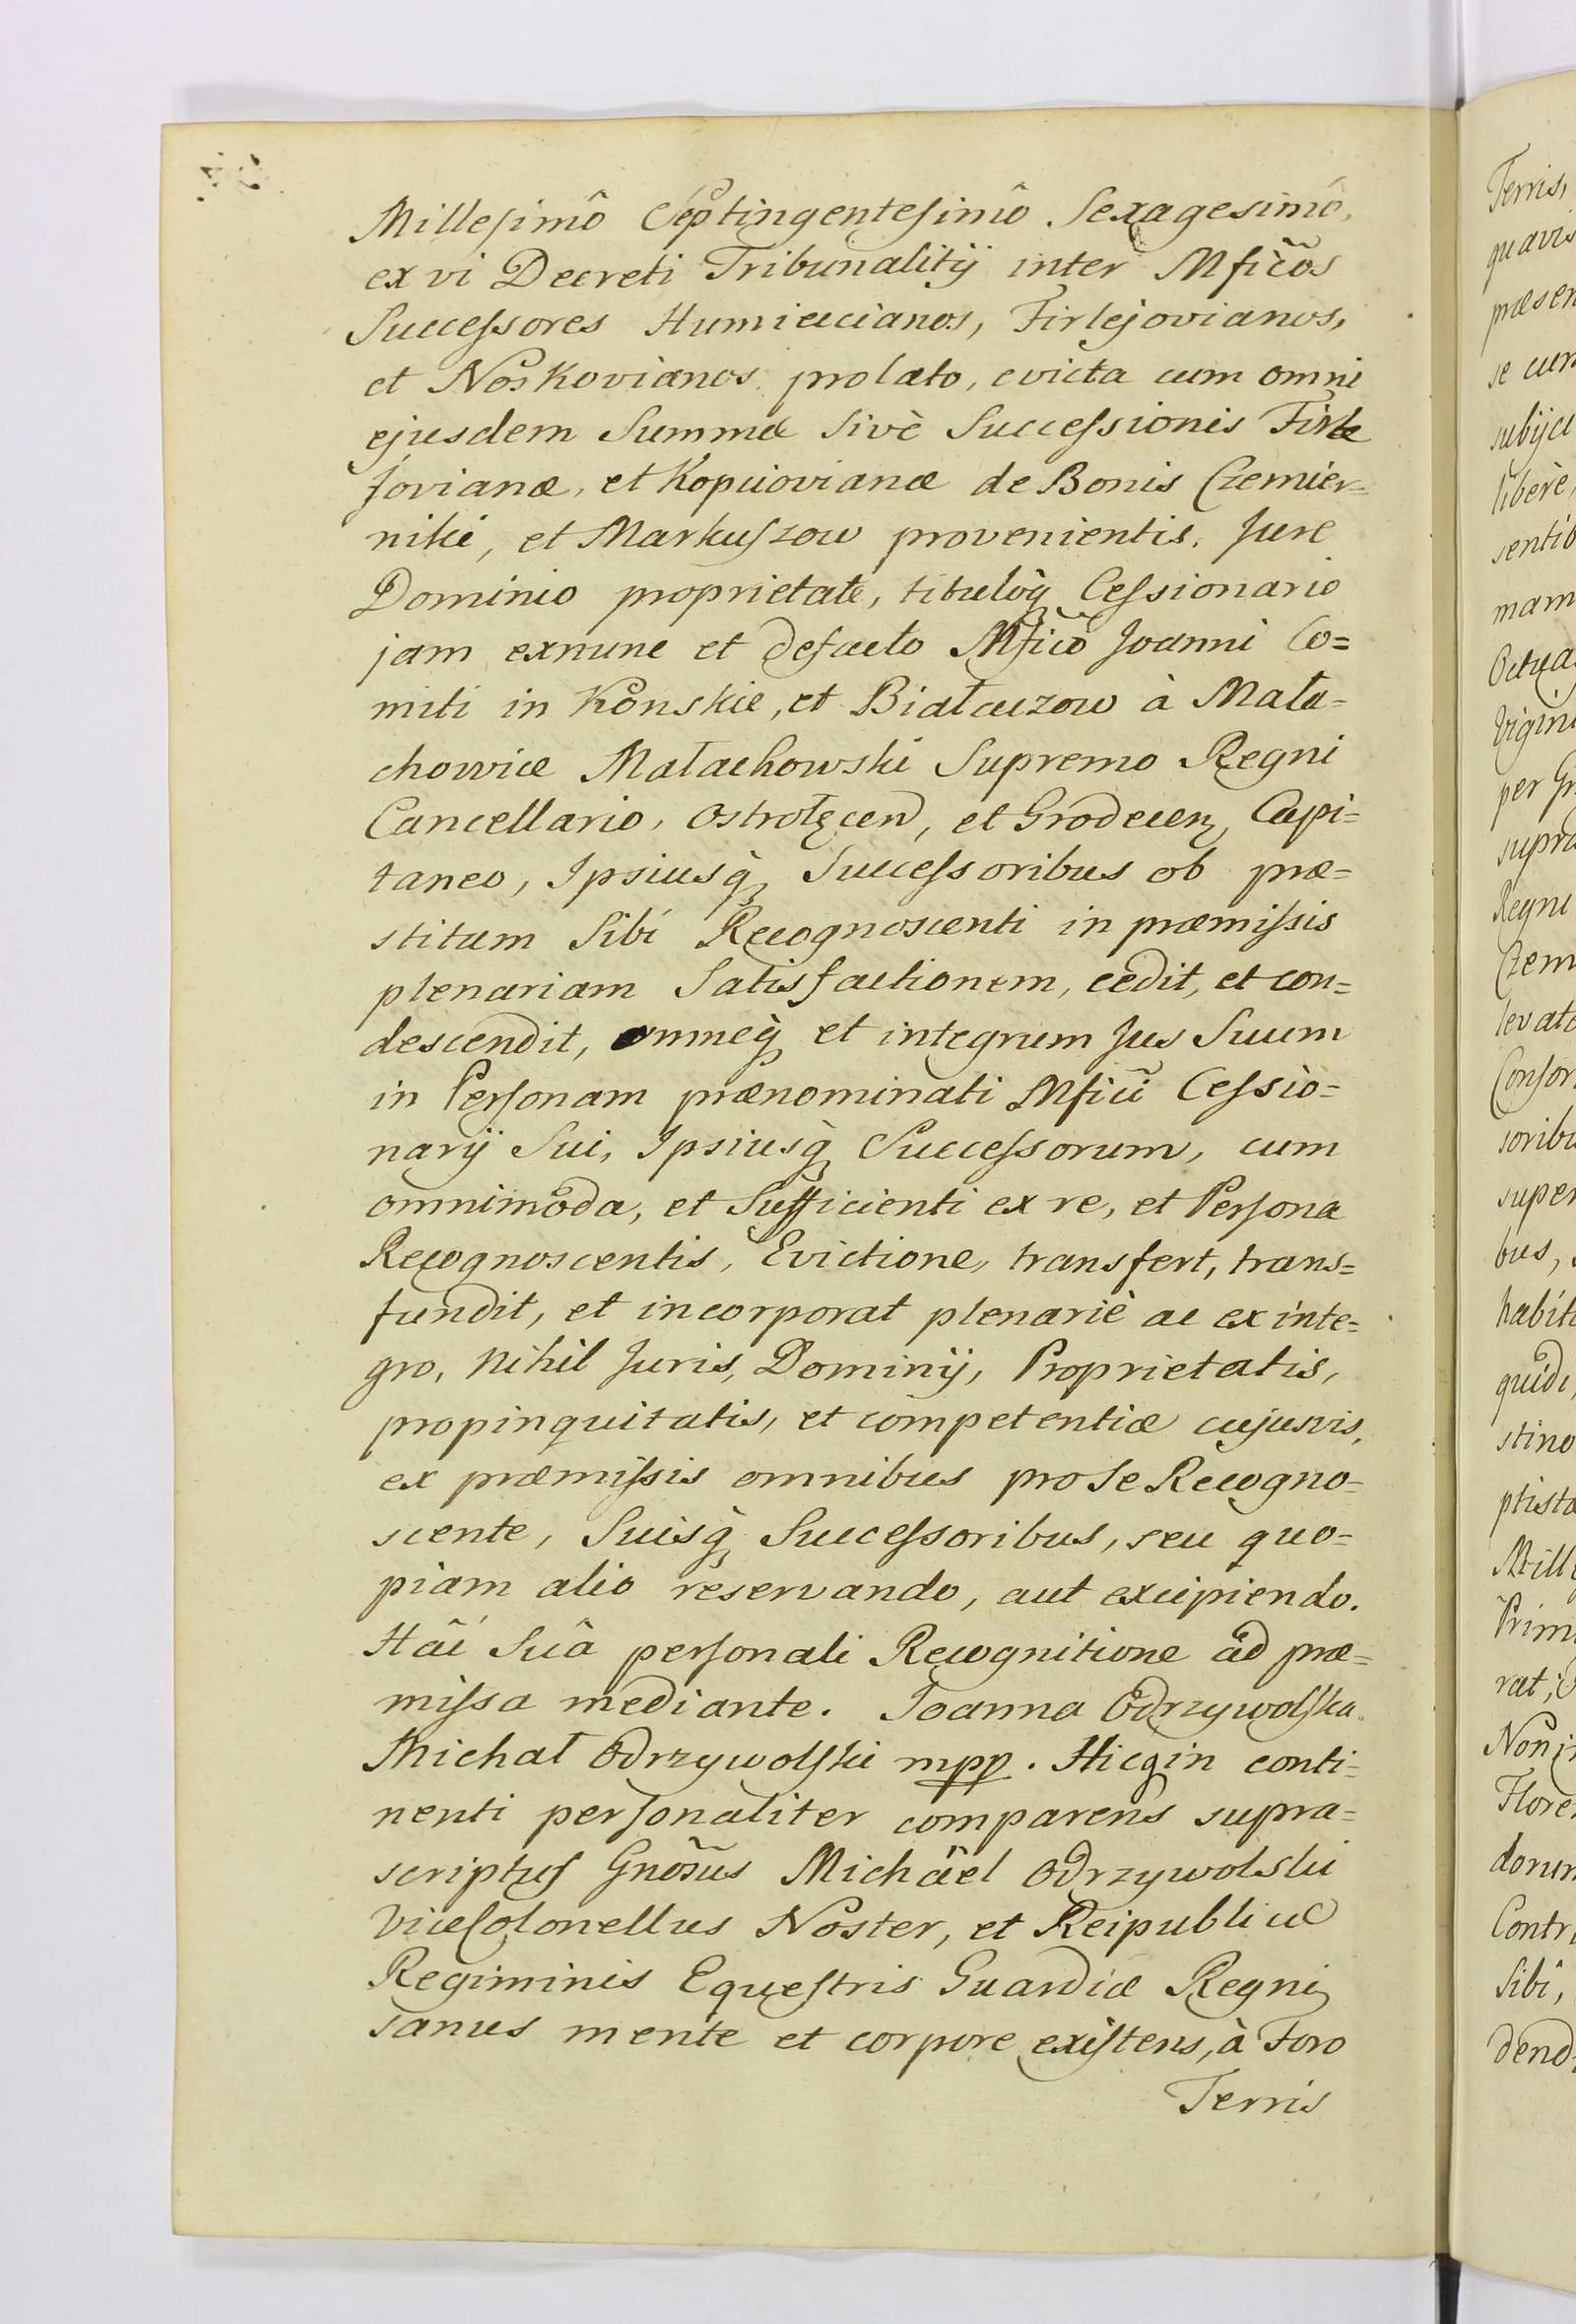 Millesimô Septingentesimô Sexagesimô,
ex vi Decreti Tribunalitij inter Mfic̃os
Successores Humieccianos, Firlejovianos,
et Noskovianos prolato, evicta cum omni
ejusdem Summæ Sivè Successionis Firle
jovianæ, et Kopciovianæ de Bonis Czemier=
niki, et Markuszow provenientis, Jure
Dominio proprietate, titulôq̀ Cessionario
jam exnunc et defacto Mfic̃o Joanni Co=
miti in Końskie, et Białaczow à Mała=
chowice Małachowski Supremo Regni
Cancellario, Ostrołęcen, et Grodecen, Capi=
taneo, Ipsiusq̀ Successoribus ob præ=
stitam Sibi Recognoscenti in præmissis
plenariam Satisfactionem, cedit, et con=
descendit, omneq̀ et integrum Jus Suum
in Personam prænominati Mfic̃i Cessio=
narij Sui, Ipsiusq̀ Successorum, cum
omnimoda, et Sufficienti ex re, et Persona
Recognoscentis, Evictione, transfert, trans=
fundit, et incorporat plenariè ac ex inte=
gro, nihil Juris, Dominij, Proprietatis,
propinquitatis, et competentiæ cujusvis,
ex præmissis omnibus pro Se Recogno=
scente, Suisq̀ Successoribus, seu quo=
piam alio reservando, aut excipiendo.
Hâc Suâ personali Recognitione ad præ=
missa mediante. Joanna Odrzywolska.
Michał Odrzywolski mpp. Hicq̨ in conti=
nenti personaliter comparens supra=
scriptus Gnõsus Michäel Odrzywolski
ViceColonellus Noster, et Reipublicæ
Regiminis Equestris Guardiæ Regni
sanus mente et corpore existens, à Foro
Terris
Terris,
quavis
præsen
se cum
subijci
libere,
sentib
mam
Octua
Vigin
per G
supra
Regni
Czem
levato
Consor
soribu
super
bus,
habit
quide
stino
ptista
Mill
Prim
rat;
Non
Flore
dorum
Contr
Sibi,
dend